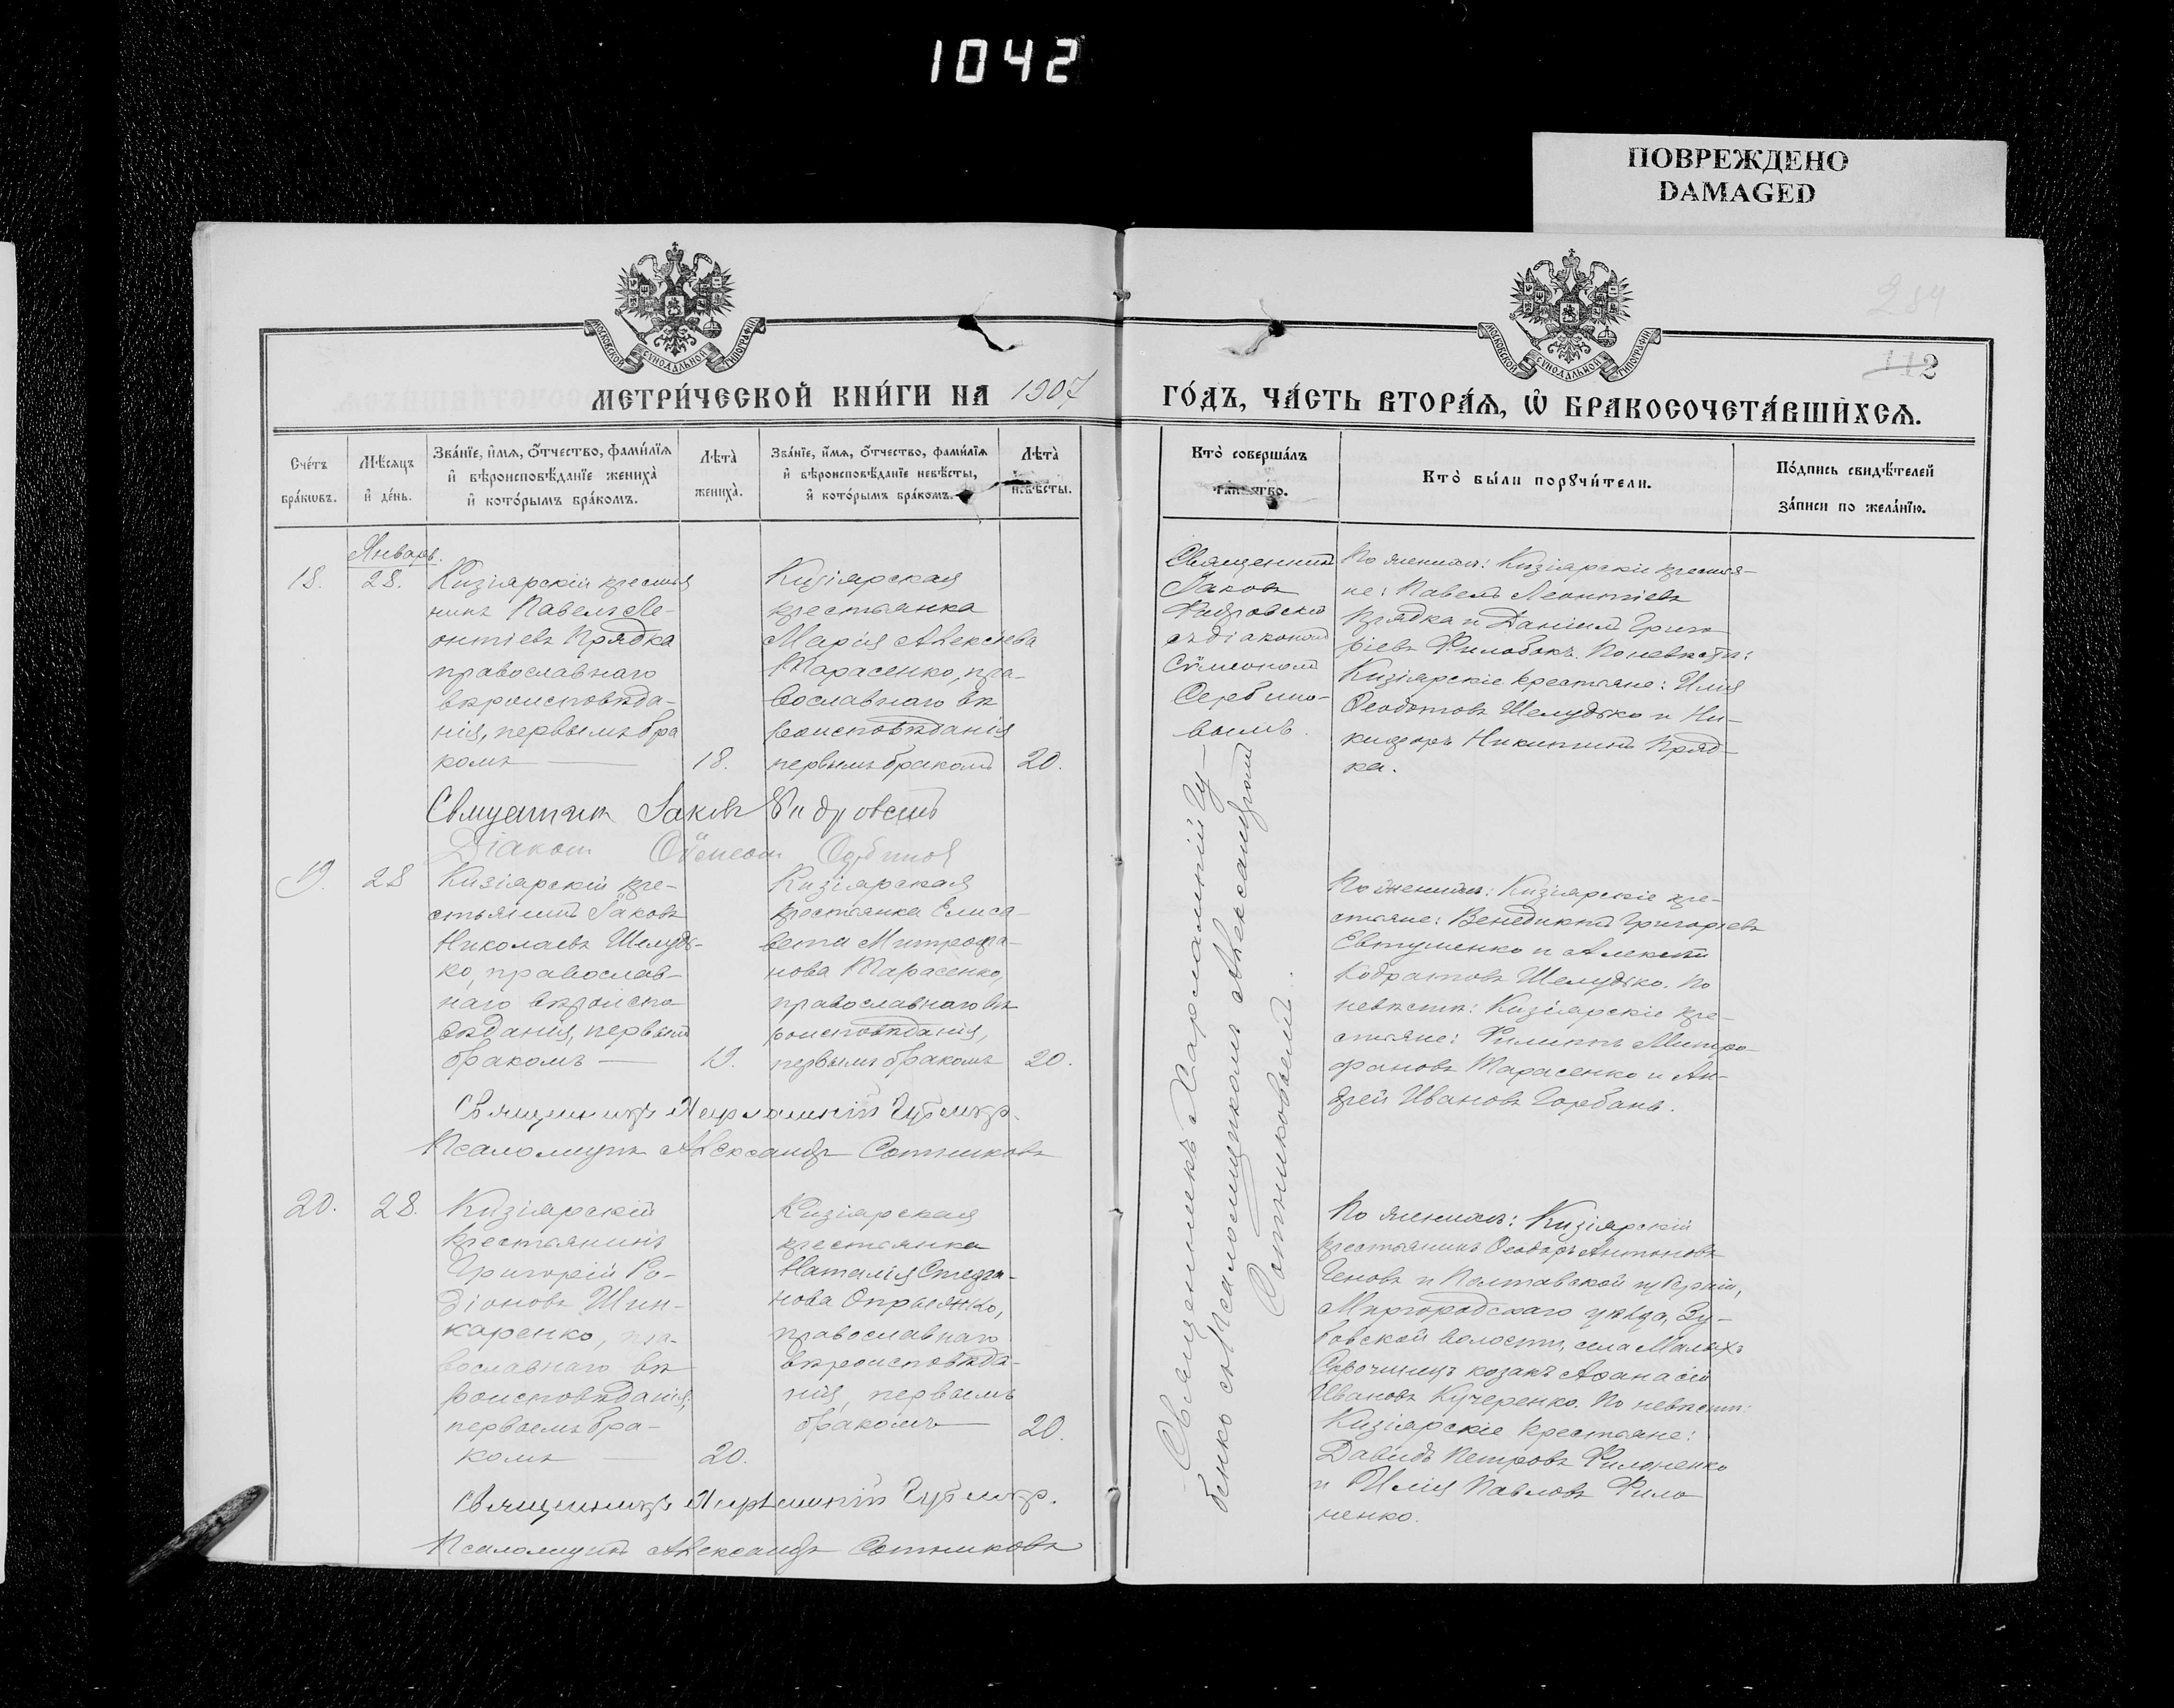 1042
ПОВРЕЖДЕНО
DAMAGED
284
112
МОСКОВСКОЙ СУНОДАЛЬНОЙ ТИПОГРАФІИ
МОСКОВСКОЙ СУНОДАЛЬНОЙ ТИПОГРАФІИ
МЕТРИ́ЧЕСКОЙ КНИ́ГИ НА 1907
ГО́ДЪ, ЧА́СТЬ ВТОРА́Ѧ, Ѽ БРАКОСОЧЕТА́ВШИХСѦ.
Сче́тъ бра́кѡвъ.
Мѣ́сѧцъ и҆ де́нь.
Зва́нїе, и҆́мѧ, ѻ҆́тчество, фами́лїѧ и҆ вѣроисповѣ́данїе жениха̀ и҆ кото́рымъ бра́комъ.
Лѣта̀ жениха̀.
Зва́нїе, и҆́мѧ, ѻ҆́тчество, фами́лїѧ и҆ вѣроисповѣ́данїе невѣ́сты, и҆ кото́рымъ бра́комъ.
Лѣта̀ невѣ́сты.
Кто̀ соверша́лъ та́инство.
Кто̀ бы́ли порꙋчи́тели.
По́дпись свидѣ́телей за́писи по жела́нїю.
Январь.
18.
28.
Кизіярскій крестья
нинъ Павелъ Ле-
онтіевъ Прядка
православнаго
вѣроисповѣда-
нія, первымъ бра
комъ
18.
Кизіярская
крестьянка
Марія Алексѣева
Тарасенко, пра-
вославнаго вѣ
роисповѣданія
первымъ бракомъ
20.
Священникъ
Іаковъ
съ діакономъ
Сѵмеономъ
Сербино-
вымъ.
По женихѣ: Кизіярскіе крестья-
не: Павелъ Леонтіевъ
Прядка и Даніилъ Григо
ріевъ Филобокъ. По невѣстѣ:
Кизіярскіе крестьяне: Илія
Ѳеодотовъ Шелудько и Ни-
кифоръ Никитинъ Пряд-
ка.
Священникъ Іаковъ
Діаконъ Сѵмеонъ Сербиновъ
19.
28
Кизіярскій кре-
стьянинъ Іаковъ
Николаевъ Шелудь-
ко, православ-
наго вѣроиспо
вѣданія, первымъ
бракомъ
19.
Кизіярская
крестьянка Елиса-
вета Митрофа-
нова Тарасенко,
православнаго вѣ
роисповѣданія,
первымъ бракомъ
20.
По женихѣ: Кизіярскіе кре-
стьяне: Венедиктъ Григоріевъ
Евтушенко и Алексѣй
Кодратовъ Шелудько. По
невѣстѣ: Кизіярскіе кре-
стьяне: Филиппъ Митро-
фановъ Тарасенко и Ан-
дрей Ивановъ Горбань.
Священникъ Харлампій Губенко.
Псаломщикъ Александръ Сотниковъ
Священникъ Харлампій Гу-
бенко съ Псаломщикомъ Александромъ
Сотниковымъ.
20.
28.
Кизіярскій
крестьянинъ
Григорій Ро-
діоновъ Шин-
каренко, пра-
вославнаго вѣ
роисповѣданія,
первымъ бра-
комъ
20.
Кизіярская
крестьянка
Наталія Стефа-
нова Опрышко,
православнаго
вѣроисповѣда-
нія, первымъ
бракомъ
20.
По женихѣ: Кизіярскій
крестьянинъ Ѳеодоръ Антоновъ
и Полтавской губерніи,
Миргородскаго уѣзда, Зу-
бовской волости, села Малыхъ
Сорочинецъ козакъ Аѳанасій
Ивановъ Кучеренко. По невѣстѣ:
Кизіярскіе крестьяне:
Давидъ Петровъ Филоненко
и Илія Павловъ Фило
ненко.
Священникъ Харлампій Губенко.
Псаломщикъ Александръ Сотниковъ